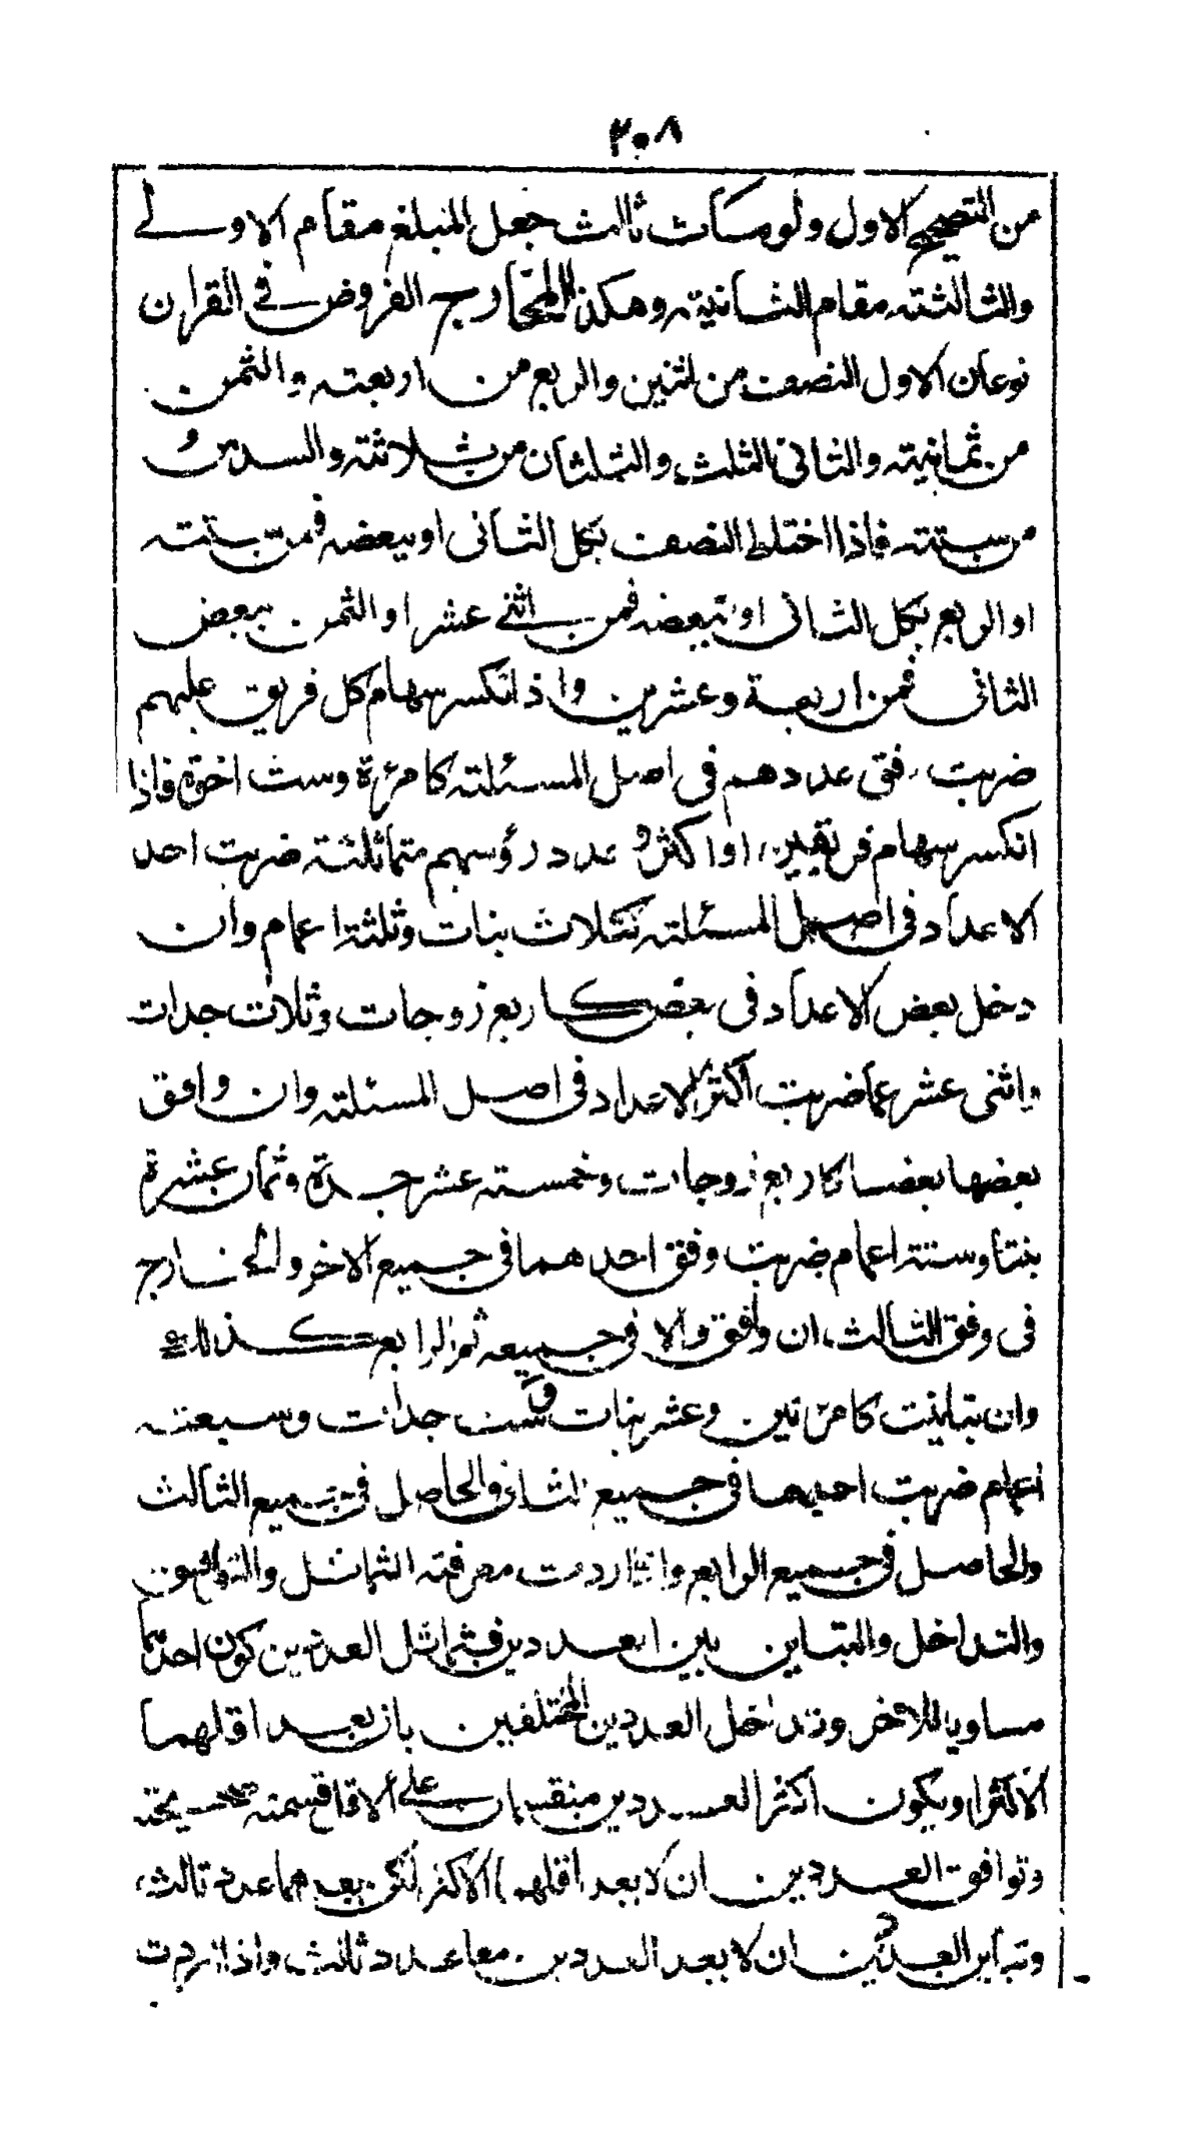 ٣٠٨
من التصحيح الاول ولومات ثالث جعل المبلغ مقام الاولے
والثالثة مقام الثانية وهكذا المخارج الفروض فى القران
نوعان الاول النصف من اثنين والربع من اربعة والثمن
من ثمانية والثانى الثلث والثلثان من ثلاثة والسدس
من ستة فاذا اختلط النصف بكل الثانى او ببعضه فمن ستة
او الربع بكل الثانى او ببعضه فمن اثنے عشر او الثمن ببعض
الثانى فمن اربعة وعشرين واذا انكسر سهام كل فريق عليهم
ضربت وفق عددهم فى اصل المسئلة كامرءة وست اخوة فاذا
انكسر سهام فريقين او اكثر و عدد رؤسهم متماثلثة ضربت احد
الاعداد فى اصل المسئلة كثلاث بنات وثلثة اعمام وان
دخل بعض الاعداد فى بعض كاربع زوجات وثلاث جدات
واثنى عشر عما ضربت اكثر الاعداد فى اصل المسئلة وان وافق
بعضها بعضا كاربع زوجات وخمسة عشر جدة وثمان عشرة
بنتا وستة اعمام ضربت وفق احدهما فى جميع الاخر والخارج
فى وفق الثالث ان وافق والا فى جميعه ثم الرابع كذلك
وان تباينت كامرءتين وعشر بنات وست جدات وسبعة
اعمام ضربت احديها فى جميع الثانى والحاصل فى جميع الثالث
والحاصل فى جميع الرابع واذا اردت معرفة التماثل والتوافق
والتداخل والتباين بين العددين فتماثل العددين كون احدهما
مساويا للاخر وتداخل العددين المختلفين بان يعد اقلهما
الاكثر او يكون اكثر العددين منقسما على الاقل قسمة صحيحة
وتوافق العددين ان لا يعد اقلهما الاكثر لكن يعدهما عدد ثالث
وتباين العددين ان لا يعد العددين معا عدد ثالث واذا اردت